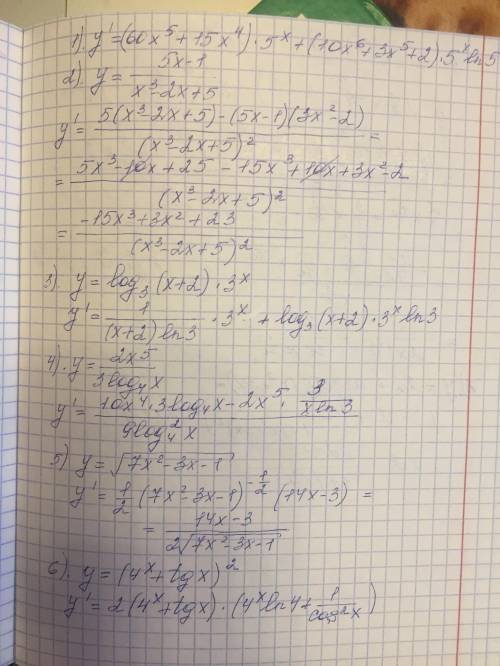 1) y' = (60x⁵ + 15x⁴) · 5ˣ + (10x⁶ + 3x⁵ + 2) · 5ˣ ln 5
2) y = (5x-1)/(x³-2x+5)
y' = (5(x³-2x+5) - (5x-1)(3x²-2))/(x³-2x+5)² =
= (5x³ - 10x + 25 - 15x³ + 10x + 3x² - 2)/(x³-2x+5)²
= (-15x³ + 3x² + 23)/(x³-2x+5)²
3). y = log₃(x+2) · 3ˣ
y' = 1/((x+2) ln 3) · 3ˣ + log₃(x+2) · 3ˣ ln 3
4). y = 2x⁵/(3 log₄ x)
y' = (10x⁴ · 3 log₄ x - 2x⁵ · 3/(x ln 3))/(9 log₄² x)
5) y = √(7x²-3x-1)
y' = 1/2 (7x²-3x-1)^(-1/2) (14x-3) =
= (14x-3)/(2√(7x²-3x-1))
6). y = (4ˣ + tg x)²
y' = 2(4ˣ + tg x) · (4ˣ ln 4 + 1/cos²x)